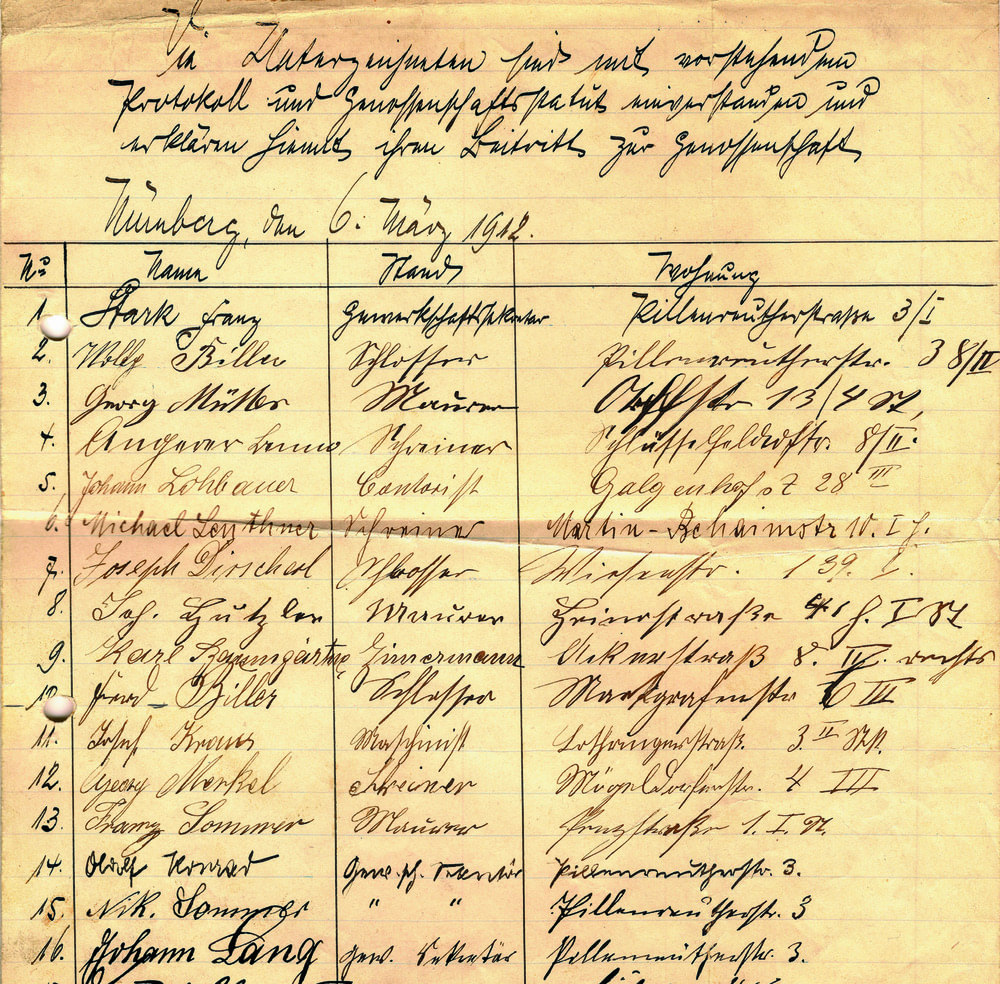 Die Unterzeichneten sind mit vorstehendem
Protokoll und Genossenschaftsstatut einverstanden und
erklären hiemit ihren Beitritt zur Genossenschaft
Nürnberg, den 6. März 1912.
No Name Stand Wohnung
1. Stark Franz Gewerkschaftssekretär Pillenreutherstraße 3/I
2. Wolfg Biller Schlosser Pillenreutherstr. 38/IV
3. Georg Müller Maurer 13/4 St,
4. Angerer Benno Schreiner Schlüsselfelderstr. 8/II.
5. Johann Lohbauer Contorist Galgenhofst 28 III
6. Michael Leythner Schreiner Martin-Behaimstr 10. I h.
7. Joseph Dirscherl Schlosser Wiesenstr. 139. I.
8. Joh. Hutzler Maurer Heinestraße 41 h. I St
9. Karl Baumgärtner Zimermann Ackerstraß 8. IV. rechts
10. Ferd Biller Schlosser Markgrafenstr 6 III
11. Josef Kraus Maschinist Lothringerstraß. 3. II St.
12. Georg Merkel Schreiner Mögeldorferstr. 4 III
13. Franz Sommer Maurer 1. I. St.
14. Adolf Konrad Gew. sch. Sekretär Pillenreutherstr. 3.
15. Nik. Sommer " " Pillenreutherstr. 3
16. Johann Lang gew. Sekretär Pillenreutherstr. 3.